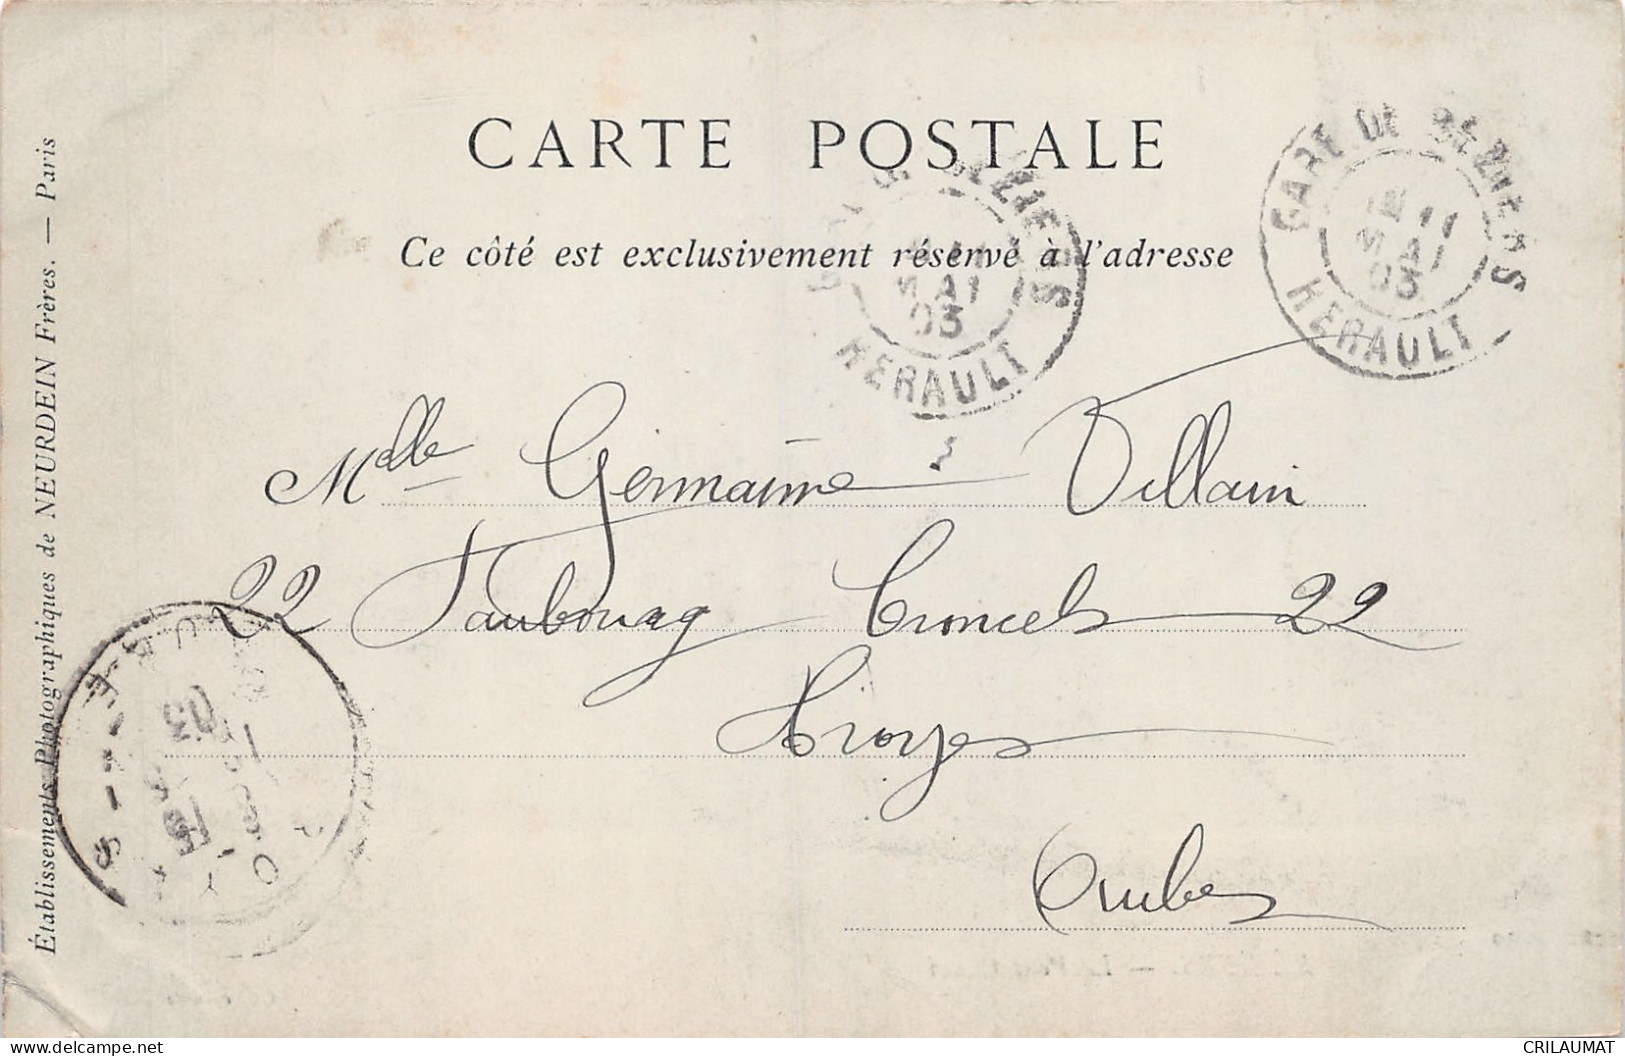 CARTE POSTALE
Ce côté est exclusivement réservé à l'adresse
GARE DE BÉZIERS
11
MAI
03
HERAULT
BÉZIERS
MAI
03
HERAULT
Mlle Germaine Villain
22 Faubourg Croncels 22
Troyes
Aube
TROYES
AUBE
03
Établissements Photographiques de NEURDEIN Frères. — Paris
CRILAUMAT